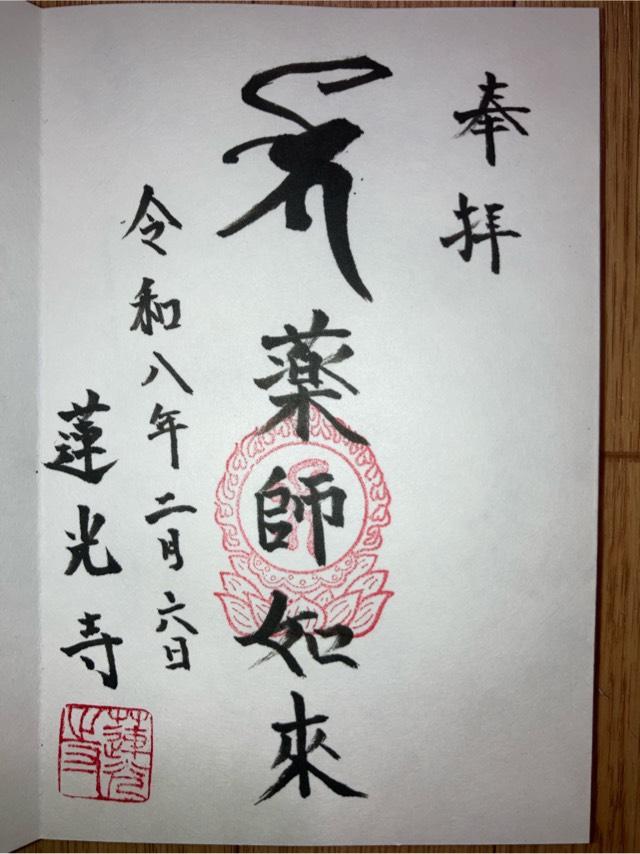 奉拝
薬師如來
令和八年二月六日
蓮光寺